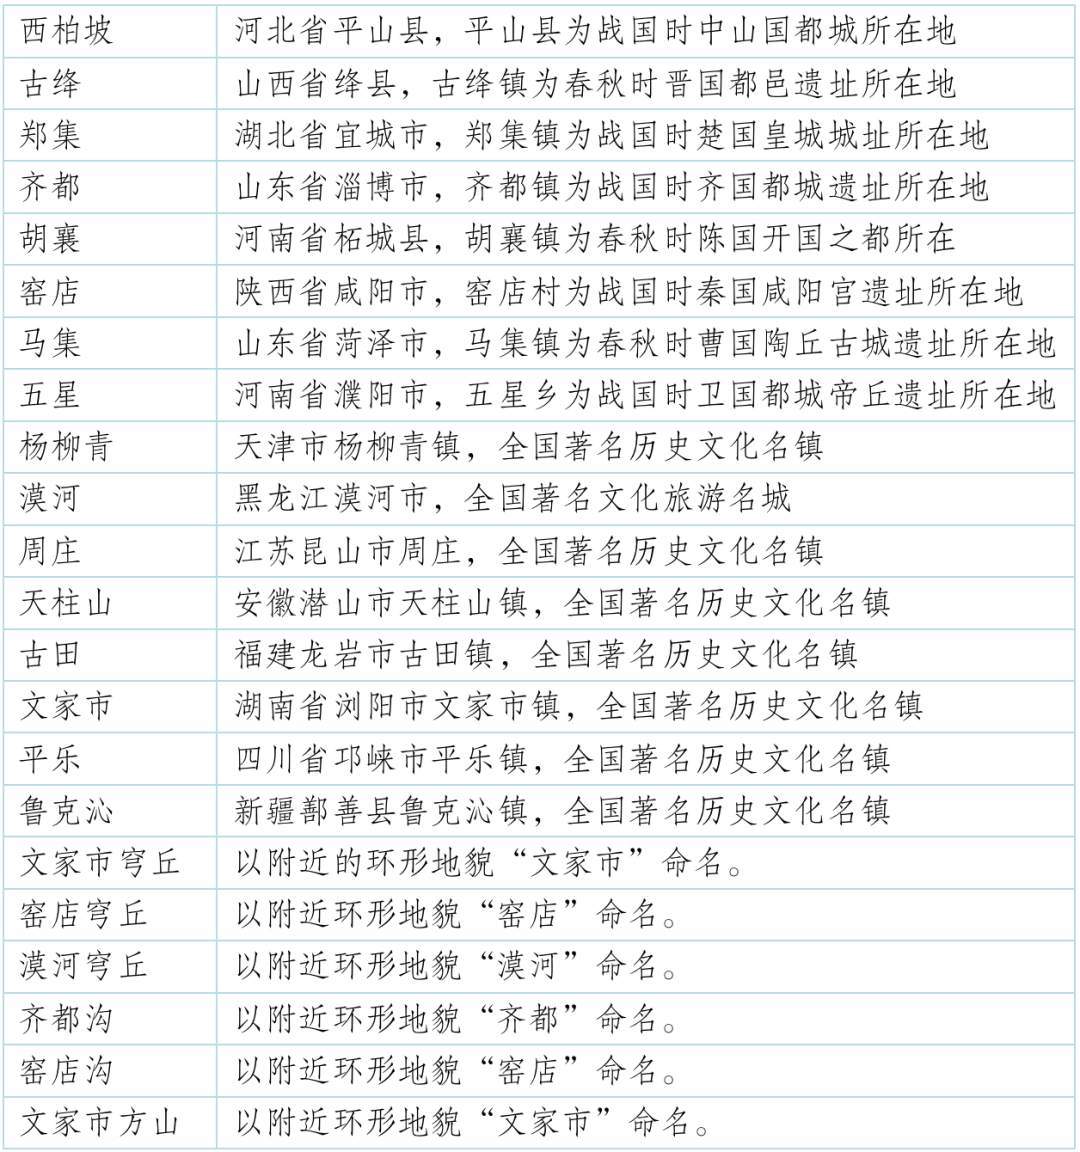 西柏坡 河北省平山县，平山县为战国时中山国都城所在地
古绛 山西省绛县，古绛镇为春秋时晋国都邑遗址所在地
郑集 湖北省宜城市，郑集镇为战国时楚国皇城城址所在地
齐都 山东省淄博市，齐都镇为战国时齐国都城遗址所在地
胡襄 河南省柘城县，胡襄镇为春秋时陈国开国之都所在
窑店 陕西省咸阳市，窑店村为战国时秦国咸阳宫遗址所在地
马集 山东省菏泽市，马集镇为春秋时曹国陶丘古城遗址所在地
五星 河南省濮阳市，五星乡为战国时卫国都城帝丘遗址所在地
杨柳青 天津市杨柳青镇，全国著名历史文化名镇
漠河 黑龙江漠河市，全国著名文化旅游名城
周庄 江苏昆山市周庄，全国著名历史文化名镇
天柱山 安徽潜山市天柱山镇，全国著名历史文化名镇
古田 福建龙岩市古田镇，全国著名历史文化名镇
文家市 湖南省浏阳市文家市镇，全国著名历史文化名镇
平乐 四川省邛崃市平乐镇，全国著名历史文化名镇
鲁克沁 新疆鄯善县鲁克沁镇，全国著名历史文化名镇
文家市穹丘 以附近的环形地貌“文家市”命名。
窑店穹丘 以附近环形地貌“窑店”命名。
漠河穹丘 以附近环形地貌“漠河”命名。
齐都沟 以附近环形地貌“齐都”命名。
窑店沟 以附近环形地貌“窑店”命名。
文家市方山 以附近环形地貌“文家市”命名。